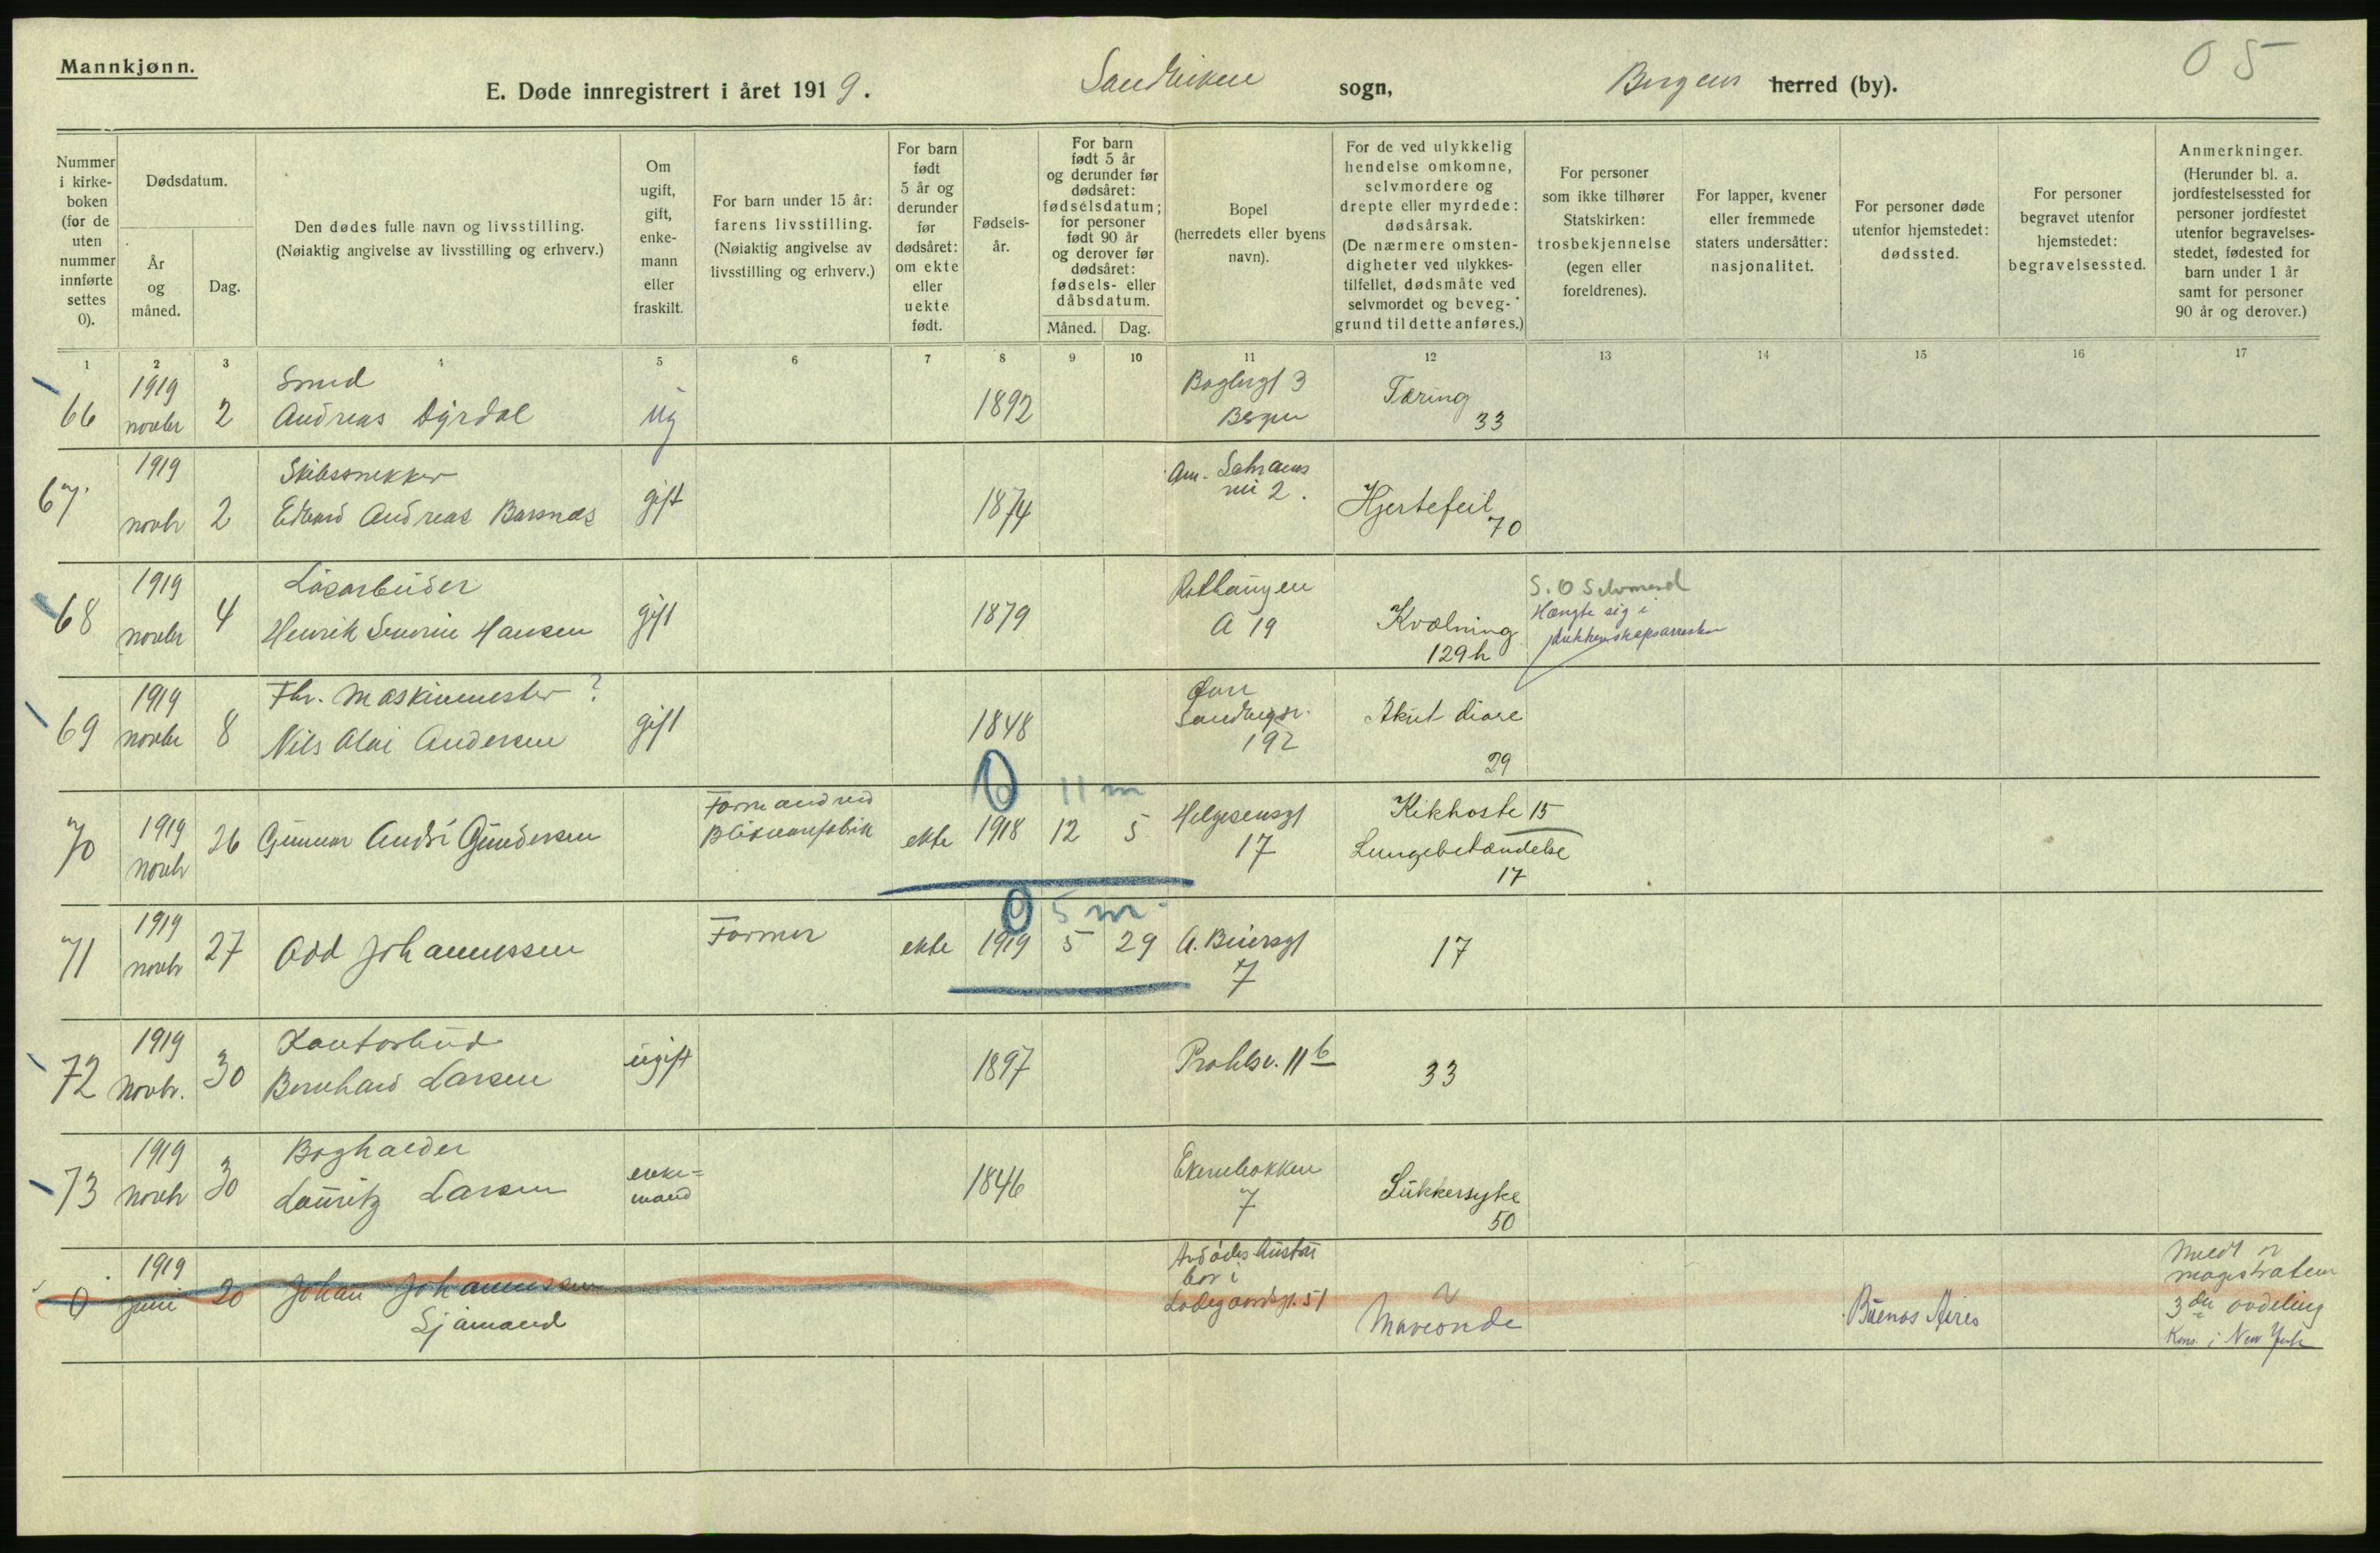 Mannkjønn.
E. Døde innregistrert i året 1919. Sandviken sogn, Bergens herred (by).
05
Nummer i kirkeboken (for de uten nummer innførte settes 0).
Dødsdatum.
År og måned.
Dag.
Den dødes fulle navn og livsstilling. (Nøiaktig angivelse av livsstilling og erhverv.)
Om ugift, gift, enkemann eller fraskilt.
For barn under 15 år: farens livsstilling. (Nøiaktig angivelse av livsstilling og erhverv.)
For barn født 5 år og derunder før dødsåret: om ekte eller uekte født.
Fødselsår.
For barn født 5 år og derunder før dødsåret: fødselsdatum; for personer født 90 år og derover før dødsåret: fødsels- eller dåbsdatum.
Måned. Dag.
Bopel (herredets eller byens navn).
For de ved ulykkelig hendelse omkomne, selvmordere og drepte eller myrdede: dødsårsak. (De nærmere omstendigheter ved ulykkestilfellet, dødsmåte ved selvmordet og beveggrund til dette anføres.)
For personer som ikke tilhører Statskirken: trosbekjennelse (egen eller foreldrenes).
For lapper, kvener eller fremmede staters undersåtter: nasjonalitet.
For personer døde utenfor hjemstedet: dødssted.
For personer begravet utenfor hjemstedet: begravelsessted.
Anmerkninger. (Herunder bl. a. jordfestelsessted for personer jordfestet utenfor begravelsesstedet, fødested for barn under 1 år samt for personer 90 år og derover.)
1 2 3 4 5 6 7 8 9 10 11 12 13 14 15 16 17
1919 Smed 3
66 novbr 2 Andreas Dyrdal ug 1892 Bergen Tæring 33
1919 Skibssnekker
67 novbr 2 Edvard Andreas Barsnæs gift 1874 2. Hjertefeil 70
1919 Løsarbeider Rothaugen S. O Selvmord
68 novbr 4 Henrik Severin Hansen gift 1879 A 19 Kvælning 129h Hængte sig i
1919 Fhv. Maskinmester ?
69 novbr 8 Nils Olai Andersen gift 1848 192 Akut diare 29
0 11 m
Formand ved
70 1919 novbr 26 Gunnar André Gundersen ekte 1918 12 5 Helgesensgt 17 Kikhoste 15
Lungebetændelse 17
0 5 m.
71 1919 novbr 27 Odd Johannessen Former ekte 1919 5 29 A. Beiersgt 7 17
1919 Kontorbud
72 Novbr. 30 Bernhard Larsen ugift 1897 11b 33
1919 Bogholder
73 Novbr 30 Lauritz Larsen enkemand 1846 Ekerebakken 7 Sukkersyke 50
1919 Avdødes hustru bor i
0 juni 20 Johan Johannessen Ladegaardsgt. 51
Sjömand Maveonde Buenos Aires
Medt
magistraten
3die avdeling
Kons. i New York